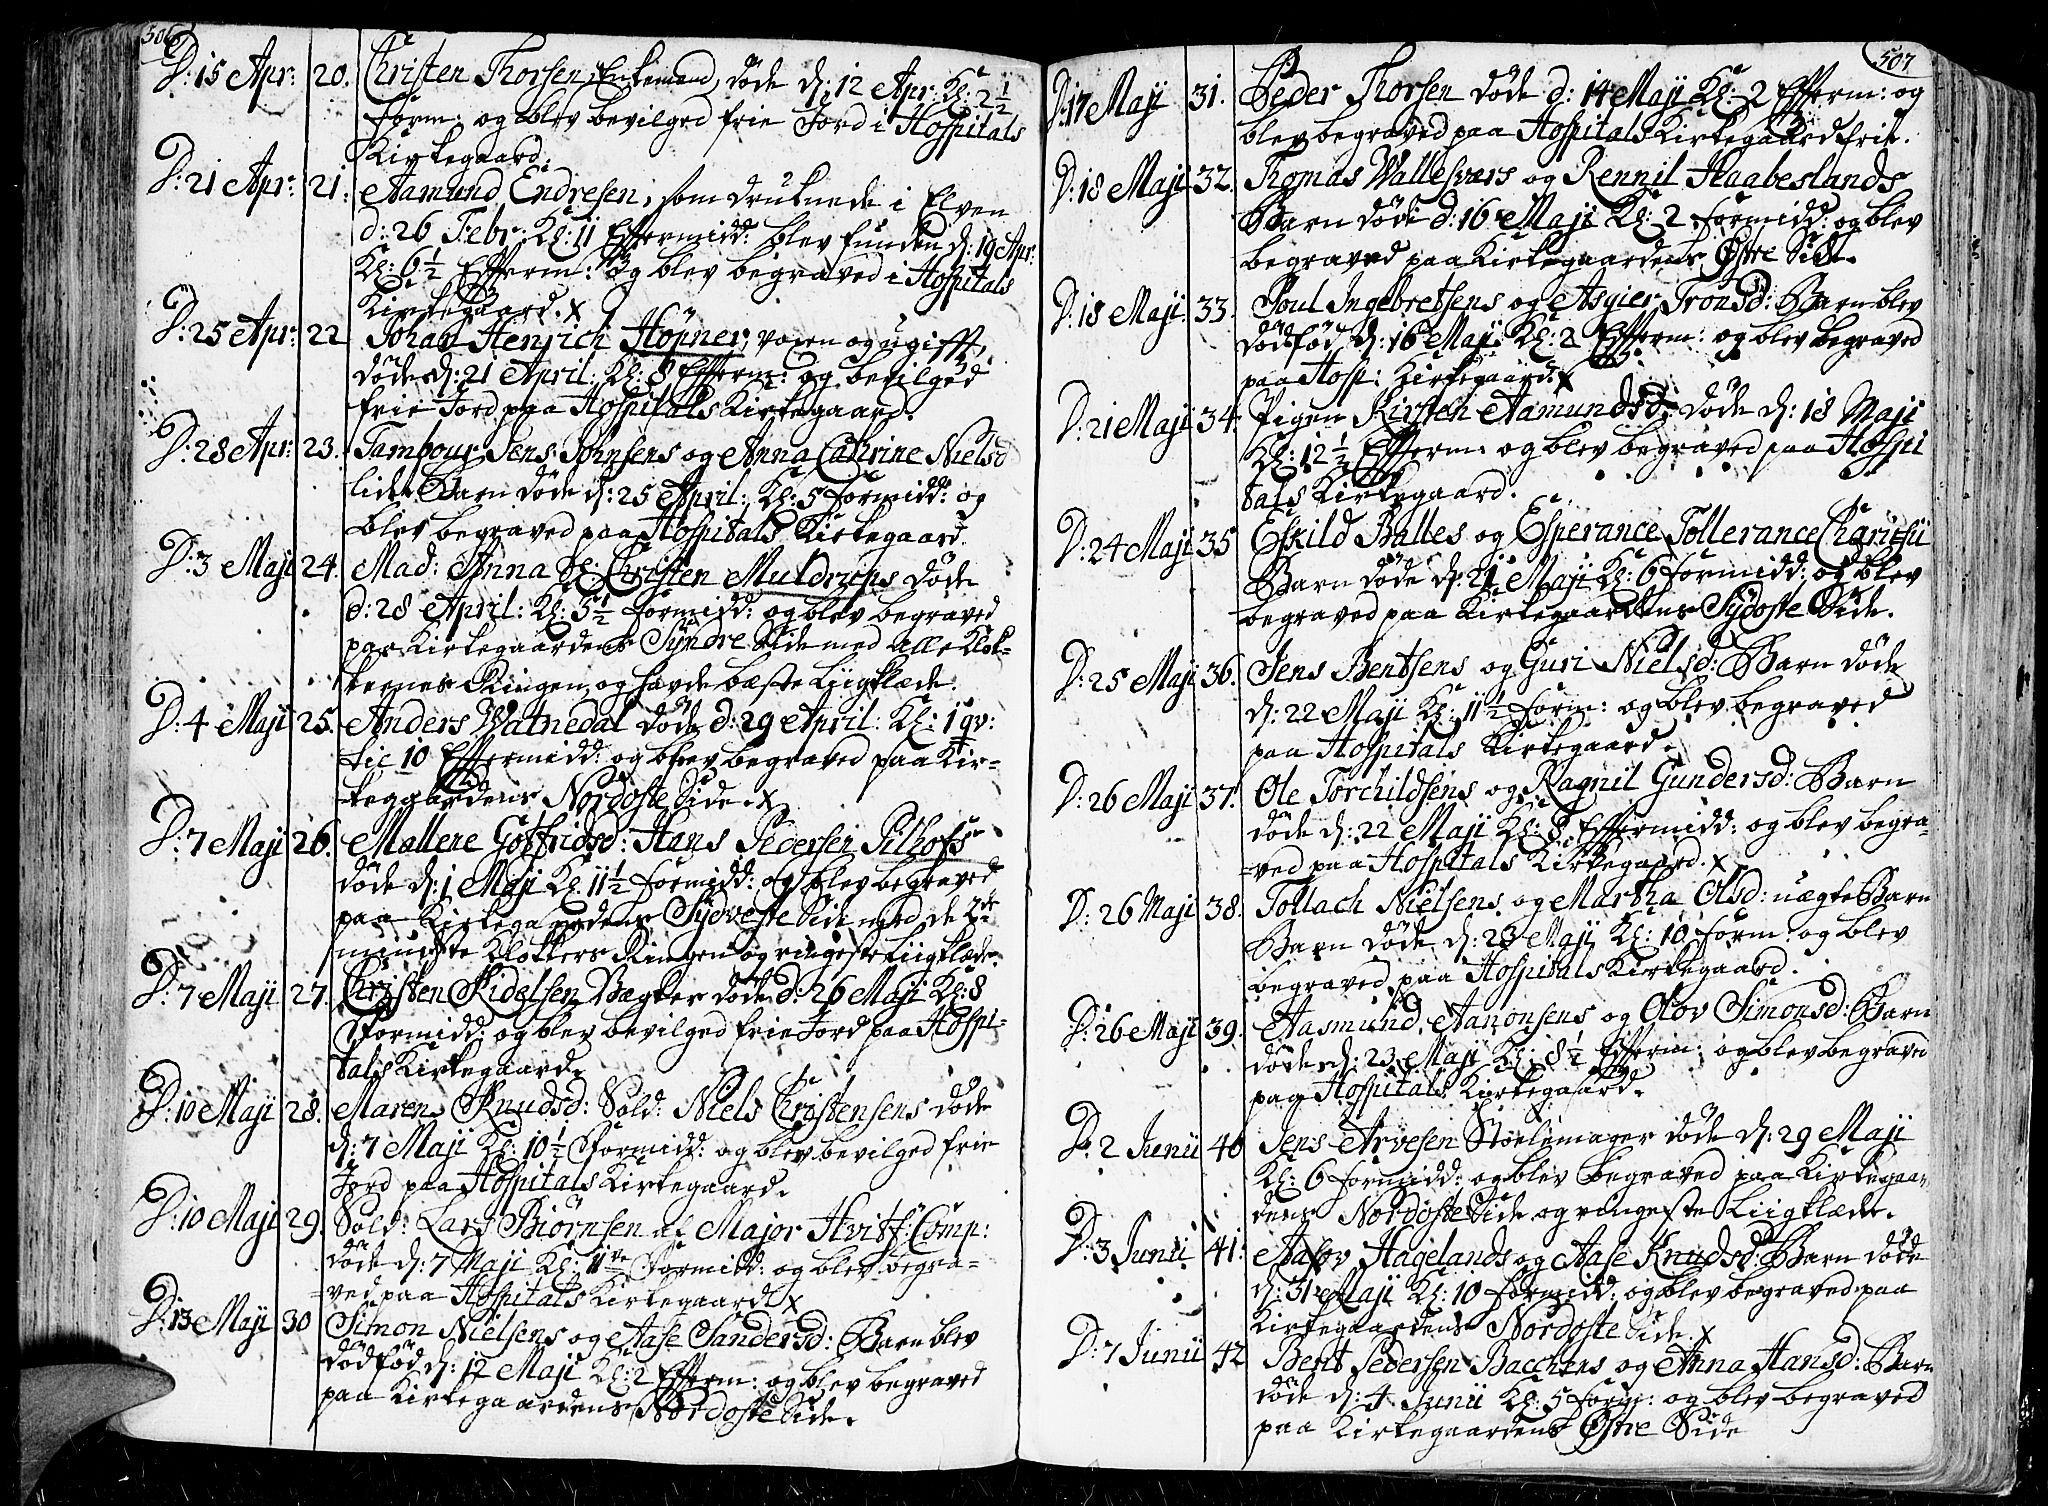 506
D: 15 Apr: 20. Christen Thorsen, Enkemand, døde d: 12 Apr: Kl: 2½
Form: og blev bevilged frie Jord i Hospitals
Kirkegaard.
D: 21 Apr: 21. Aamund Endresen, som druknede i Elven
d: 26 Febr: Kl: 11 Efftermidd: blev funden d: 19 Apr:
Kl: 6½ Effterm: og blev begraved i Hospitals
Kirkegaard. x
D: 25 Apr: 22 Johan Henrich Höpner, voxen og ugifft,
døde d: 21 April: Kl: 8 Effterm: og bevilged
frie Jord paa Hospitals Kirkegaard.
D: 28 Apr: 23. Tambour Jens Johnsens og Anna Cathrine Nielsd
lidet Barn døde d: 25 April: Kl: 5 Formidd: og
blev begraved paa Hospitals Kirkegaard.
D: 3 Maji 24. Mad: Anna Christen Muldrups døde
d: 28 April: Kl: 5½ Formidd: og blev begraved
paa Kirkegaardens Syndre Side med alle Klok-
kernes Ringen og havde bæste Liigklæde.
D: 4 Maji 25. Anders Watnedal døde d: 29 April: Kl: 1 qv:
til 10 Efftermidd: og blev begraved paa Kir-
kegaardens Nordoste Side. x
D: 7 Maji 26. Mallene Gotfridsd: Hans Pedersen Pilhofs
døde d: 1 Maji Kl: 11½ Formidd: og blev begraved
paa Kirkegaardens Sydveste Side med de 2de
mindste Klokkers Ringen og ringeste Liigklæde.
D: 7 Maji 27. Christen Kidelsen Bægker døde d: 26 Maji Kl: 8
Formidd: og blev bevilged frie Jord paa Hospi-
tals Kirkegaard.
D: 10 Maji 28. Maren Knudsd: Sold: Niels Christensens døde
d: 7 Maji Kl: 10½ Formidd: og blev bevilged frie
Jord paa Hospitals Kirkegaard.
D: 10 Maji 29. Sold: Lars Biörnsen af Major Hvitf: Comp:
døde d: 7 Maji Kl: 11 Formidd: og blev begra-
ved paa Hospitals Kirkegaard x
D: 13 Maji 30 Simon Nielsens og Aase Sandersd: Barn blev
dødfød d: 12 Maji Kl: 2 Effterm: og blev begraved
paa Kirkegaardens Nordoste Side.
507
D: 17 Maji 31. Peder Thorsen døde d: 14 Maji Kl: 2 Effterm: og
blev begraved paa Hospitals Kirkegaard frie.
D: 18 Maji 32. Thomas Wallesværs og Rennil Haabeslands
Barn døde d: 16 Maji Kl: 2 formidd: og blev
begraved paa Kirkegaardens Østre Side.
D: 18 Maji: 33. Poul Ingebretsens og Asgier Tronsd: Barn blev
dødfød d: 16 Maji Kl: 2 Effterm: og blev begraved
paa Hosp: Kirkegaard. x
D: 21 Maji 34. Pigen Kirsten Aamundsd: døde d: 18 Maji
Kl: 12½ Effterm: og blev begraved paa Hospi
tals Kirkegaard.
D: 24 Maji 35 Eskild Balles og Esperance Tollerance
Barn døde d: 21 Maji Kl: 6 Formidd: og blev
begraved paa Kirkegaardens Sydoste Side.
D: 25 Maji 36. Jens Bentsens og Guri Nielsd: Barn døde
d: 22 Maji Kl: 11½ Form: og blev begraved
paa Hospitals Kirkegaard.
D: 26 Maji 37. Ole Torchildsens og Ragnil Gundersd: Barn
døde d: 22 Maji Kl: 8 Efftermidd: og blev begra-
-ved paa Hospitals Kirkegaard. x
D: 26 Maji 38. Tollach Nielsens og Martha Olsd: uægte Barn
Barn døde d: 23 Maji Kl: 10 Form: og blev
begraved paa Hospitals Kirkegaard.
D: 26 Maji 39. Aasmund Aanonsens og Olov Simonsd: Barn
døde d: 23 Maji Kl: 8½ Effterm: og blev begraved
paa Hospitals Kirkegaard.
D: 2 Junii 40 Jens Arvesen Stoelemager døde d: 29 Maji
Kl: 6 formidd: og blev begraved paa Kirkegaar-
dens Nordoste Side og ringeste Liigklæde.
D: 3 Junii 41. Aasov Hagelands og Aase Knudsd: Barn døde
d: 31 Maji Kl: 10 formidd: og blev begraved paa
Kirkegaardens Nordoste Side. x
D: 7 Junii 42 Bent Pedersen Bacchens og Anna Hansd: Barn
døde d: 4 Junii Kl: 5 Form: og blev begraved
paa Kirkegaardens Østre Side